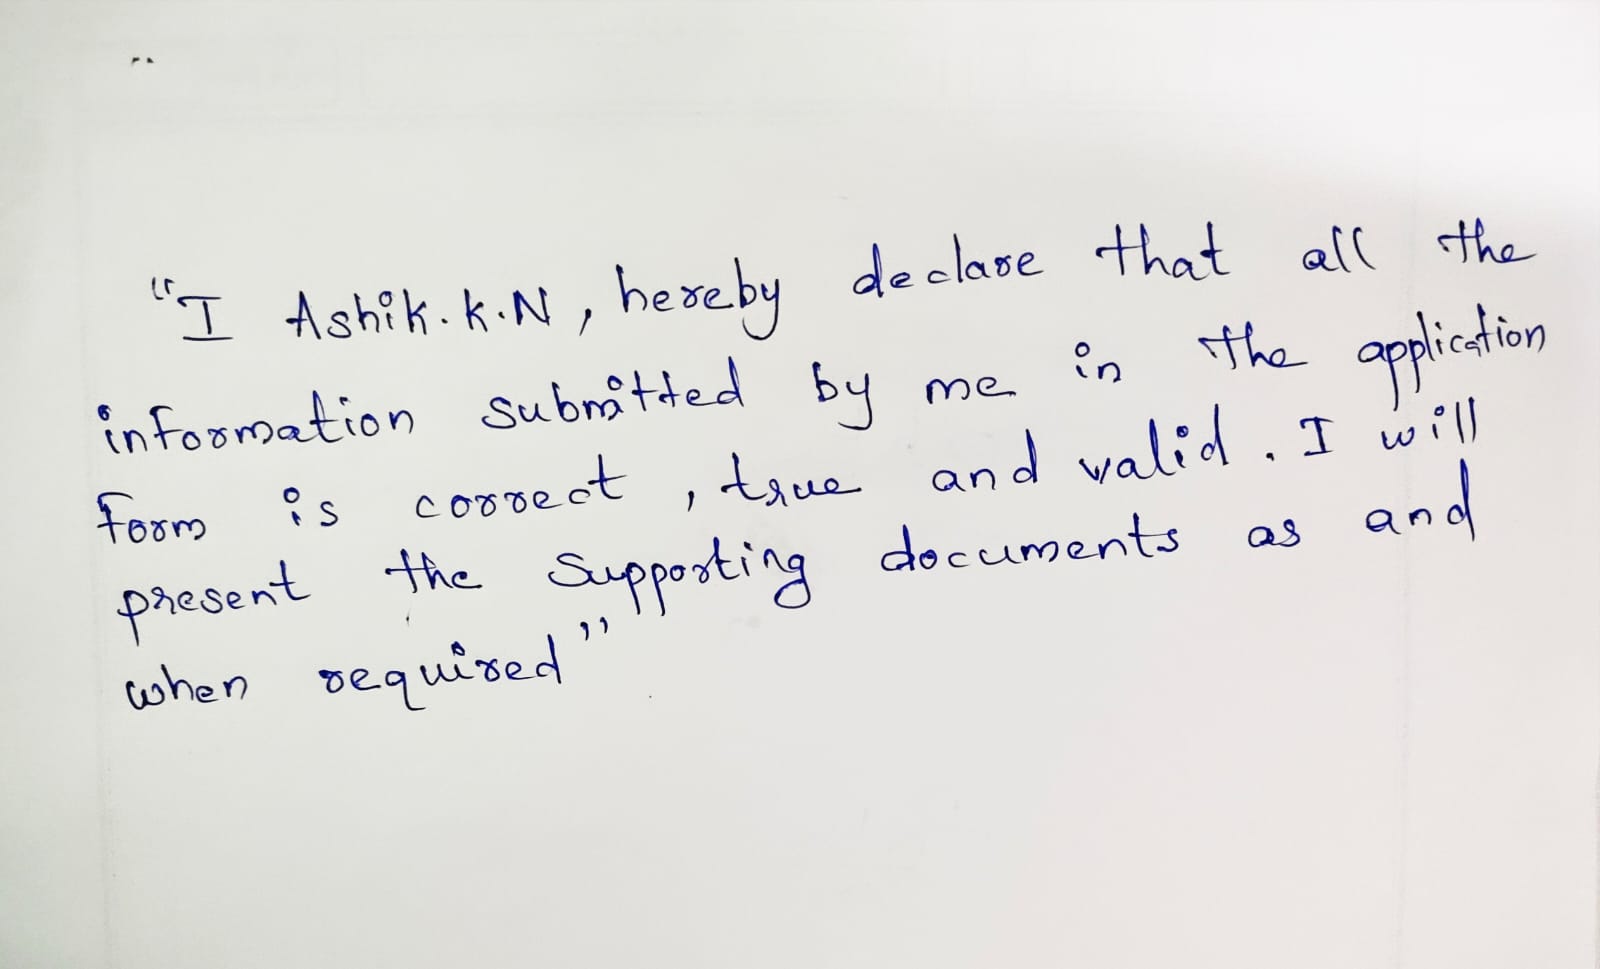 "I Ashik.K.N, hereby declare that all the
information submitted by me in the application
form is correct, true and valid. I will
present the supporting documents as and
when required"